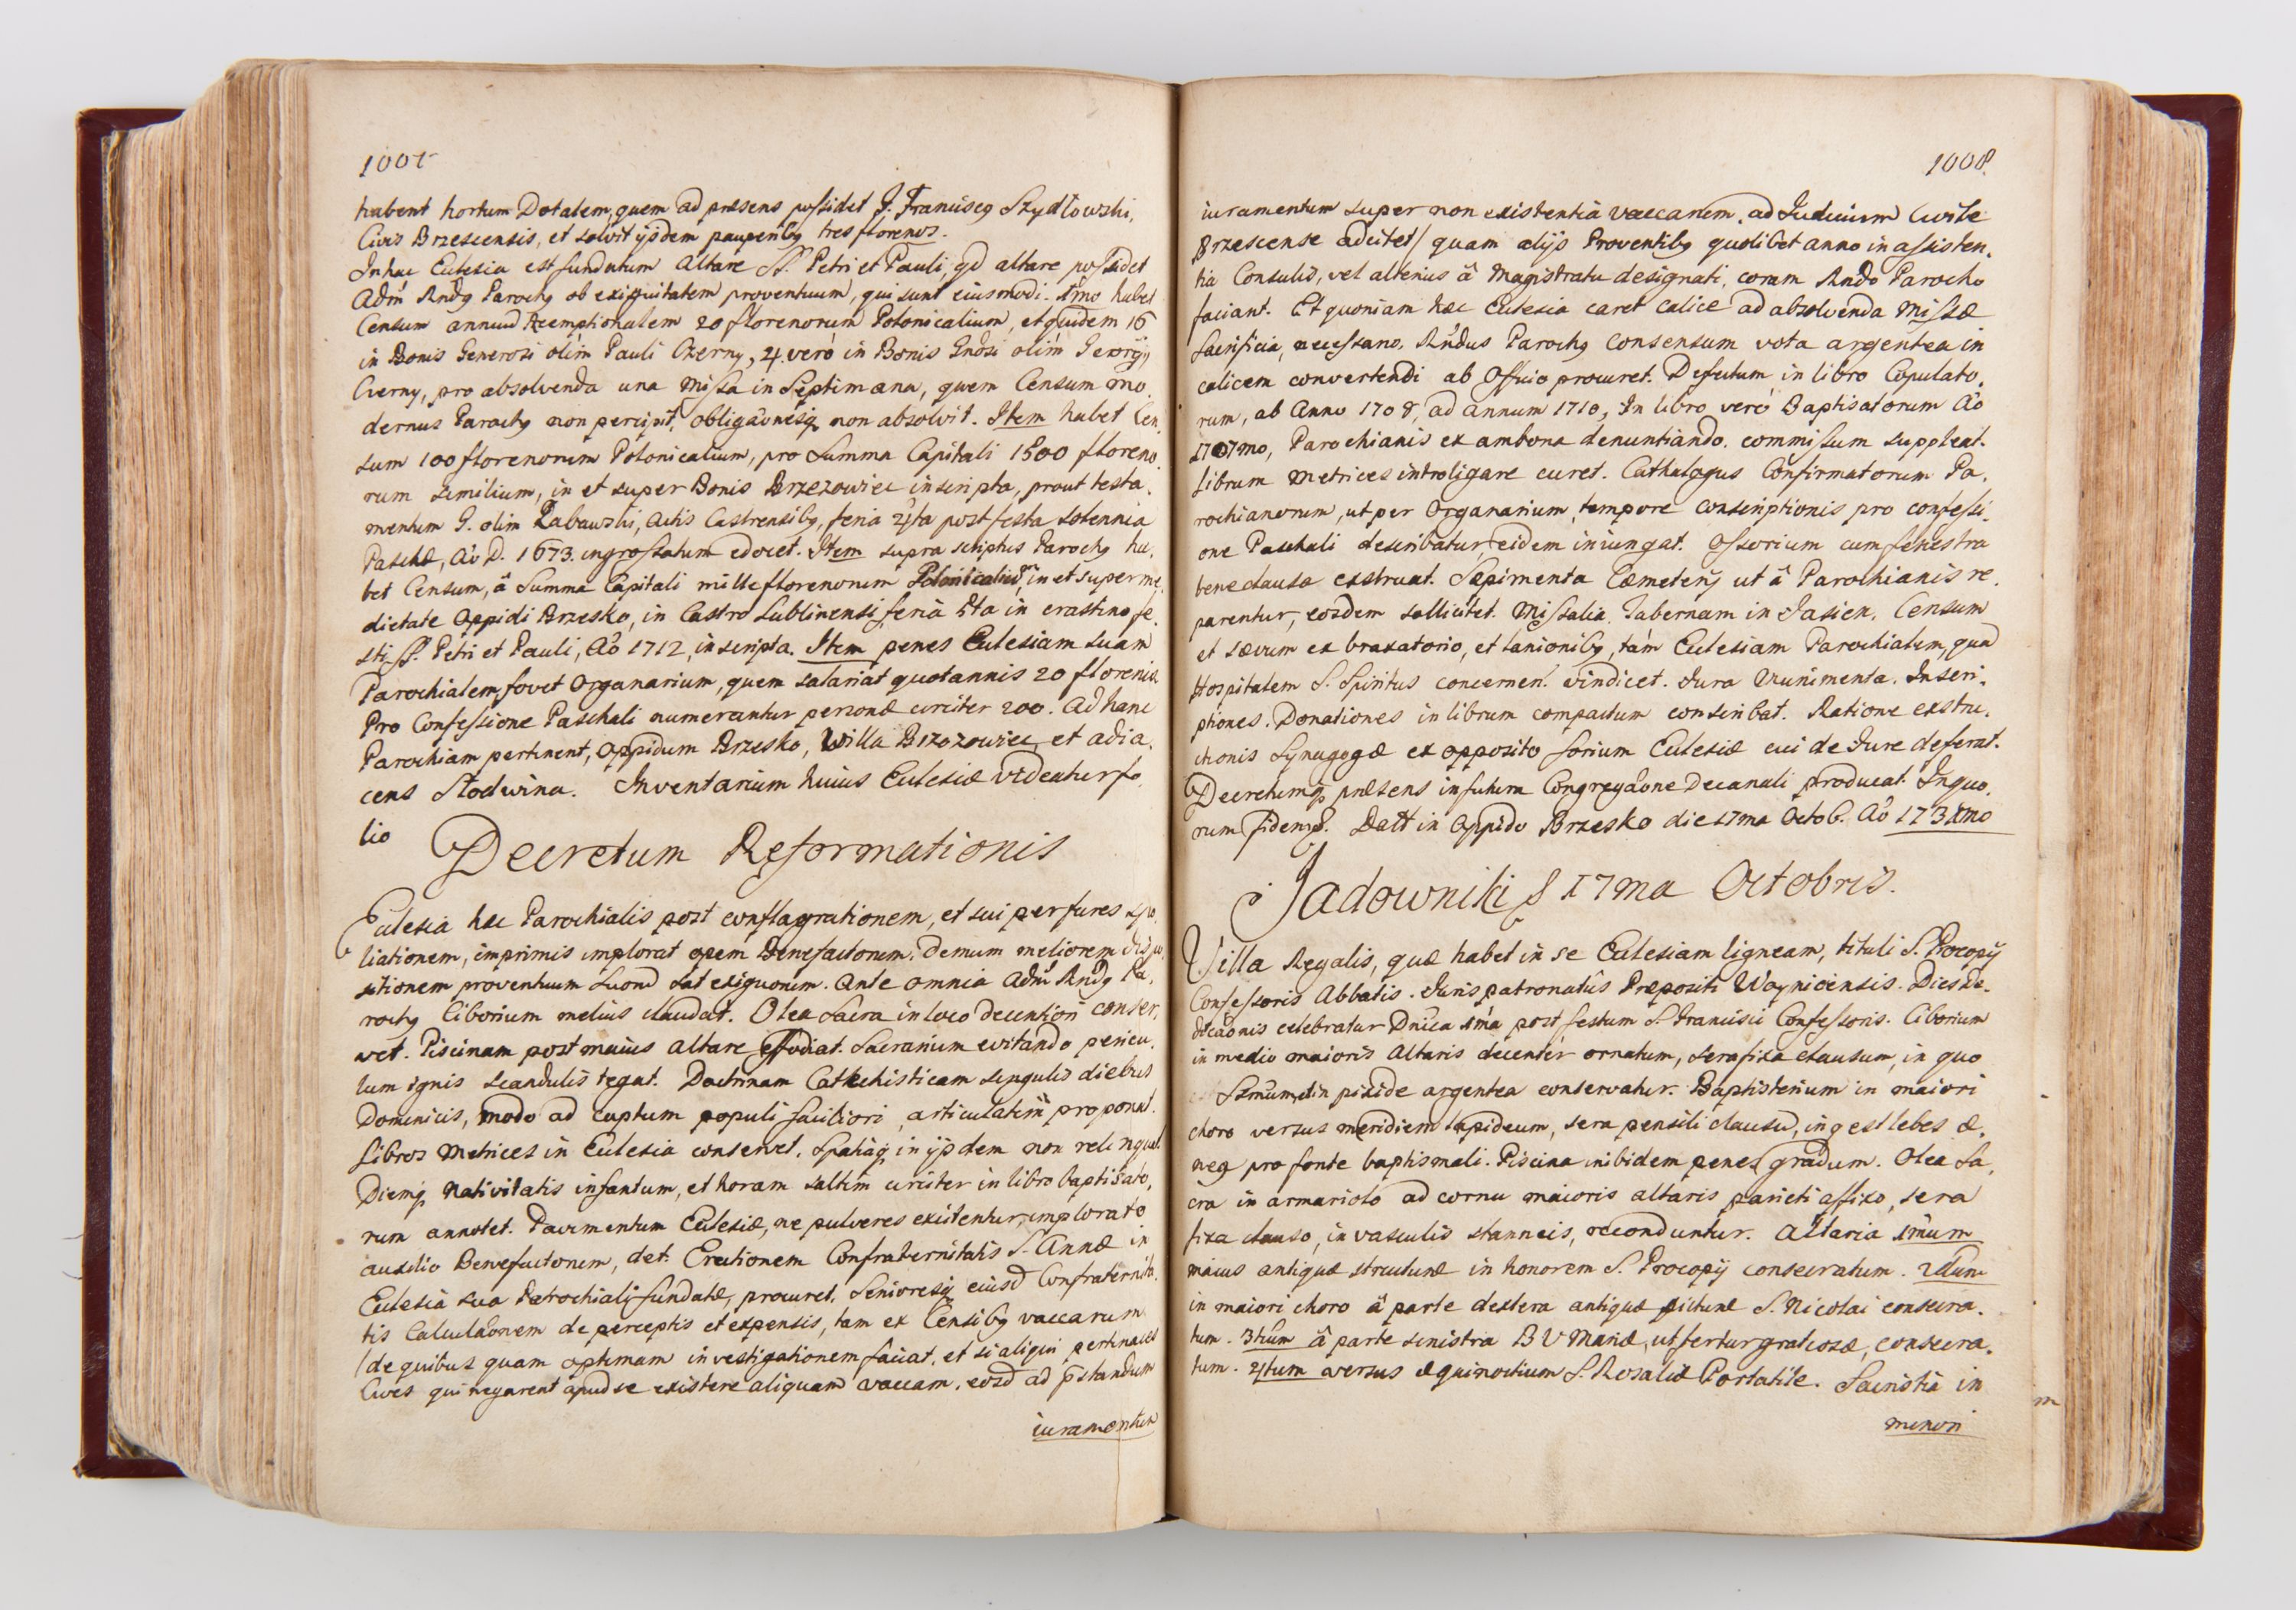 1007
habent hortum Dotalem, quem ad præsens possidet G. Franciscq Szydłowski,
Civis Brzescensis, et solvit ijsdem pauperibq tres florenos.
In hac Ecclesia est fundatum Altare SS. Petri et Pauli, qd altare possidet
Adm Rndq Parochq ob exiguitatem proventuum, qui sunt eiusmodi. 1mo habet
Censum annuū Reemptionalem 20 florenorum Polonicalium, et quidem 16
in Bonis Generosi olim Pauli Czerny, 4. verò in Bonis Gnosi olim Georgij
Czerny, pro absolvenda una Missa in Septimana, quem Censum mo.
dernus Parochq non percipit, obligaōnesq non absolvit. Item habet Cen.
sum 100 florenorum Polonicalium, pro Summa Capitali 1500 floreno.
rum similium, in et super Bonis Brzezowiec inscripta, prout testa.
mentum G. olim Rabawski, Actis Castrensibq, feria 4ta post festa solennia
Paschæ, Ao D. 1673. ingrossatum edocet. Item supra scriptus Parochq ha.
bet Censum, â Summa Capitali mille florenorum Polonicaliū, in et super me.
dietate Oppidi Brzesko, in Castro Lublinensi feria 5ta in crastino fe.
sti SS. Petri et Pauli, Aō 1712, inscripta. Item penes Ecclesiam suam
Parochialem fovet Organarium, quem salariat quotannis 20 florenis.
Pro Confessione Paschali numerantur personæ circiter 200. Ad hanc
Parochiam pertinent, Oppidum Brzesko, Willa Brzozowiec, et adia.
cens Słotwina. Inventarium huius Ecclesiæ videatur fo.
lio
Decretum Reformationis
Ecclesia hæc Parochialis post conflagrationem, et sui per fures spo.
liationem, imprimis implorat opem Benefactorum. Demum meliorem dispo.
sitionem proventuum suorū sat exiguorum. Ante omnia Adm Rndq Pa.
rochq Ciborium melius claudat. Olea Sacra in loco decentiori conser.
vet. Piscinam post maius Altare effodiat. Sacrarium evitando pericu.
lum ignis scandulis tegat. Doctrinam Cathechisticam singulis diebus
Dominicis, modo ad captum populi faciliori, articulatim proponat.
Libros Metrices in Ecclesia conservet. Spatiaq in ijsdem non relinquat
Diemq Nativitatis infantum, et horam saltim circiter in libro baptisato.
rum annotet. Pavimentum Ecclesiæ, ne pulveres excitentur, implorato
auxilio Benefactorum, det. Erectionem Confraternitatis S. Annæ in
Ecclesia sua Parochiali fundatæ, procuret. Senioresq eiusd Confraternita.
tis Calculaōnem de perceptis et expensis, tam ex Censibq vaccarum
/de quibus quam optimam investigationem faciat, et si aliqui pertinaces
Cives qui negarent apud se existere aliquam vaccam, eosd ad pstandum
iuramentum
1008.
iuramentum super non existentia vaccarum, ad Iudicium Civile
Brzescense adcitet/ quam alijs Proventibq quolibet anno in assisten.
tia Consulis, vel alterius â Magistratu designati, coram Rndo Parocho
faciant. Et quoniam hæc Ecclesia caret Calice ad absolvenda Missæ
Sacrificia, necessario, Rndus Parochq Consensum vota argentea in
calicem convertendi ab Officio procuret. Defectum in libro Copulato.
rum, ab Anno 1708, ad annum 1710, In libro verò Baptisatorum Aō
1707mo, Parochianis ex ambona denuntiando. commissum suppleat.
Librum Metrices introligare curet. Cathalogus Confirmatorum Pa.
rochianorum, ut per Organarium, tempore conscriptionis pro confessi.
one Paschali describatur, eidem iniungat. Ossorium cum fenestra
bene clausæ exstruat. Sæpimenta Cæmeterij ut â Parochianis re.
parentur, eosdem sollicitet. Missalia, Tabernam in Jasien, Censum
et sævum ex braxatorio, et lanionibq, tàm Ecclesiam Parochialem, quā
Hospitalem S. Spiritus concernen. vindicet. Iura Munimenta. Inscri.
ptiones. Donationes in librum compactum conscribat. Ratione exstru.
ctionis Synagogæ ex opposito forium Ecclesiæ cui de Iure deferat.
Decretumq præsens in futura Congregaōne Decanali producat. In quo.
rum fidemq. Datt in Oppido Brzesko die 17ma Octob. Aō
Jadowniki 17ma Octobris.
Villa Regalis, quæ habet in se Ecclesiam ligneam, tituli S. Procopij
Confessoris Abbatis. Iuris patronatûs Præpositi Woynicensis. Dies De.
dicaōnis celebratur Dnica 1ma post festum S. Francisci Confessoris. Ciborium
in medio maioris Altaris decentèr ornatum, sera fixa clausum, in quo
Ssmum in pixide argentea conservatur. Baptisterium in maiori
choro versus meridiem lapideum, sera pensili clausū, in q est lebes æ.
neq pro fonte baptismali. Piscina inibidem penes gradum. Olea Sa.
cra in armariolo ad cornu maioris altaris parieti affixo, sera
fixa clauso, in vasculis stanneis, reconduntur. Altaria 1mum
maius antiquæ structuræ in honorem S. Procopij consecratum. 2dum
in maiori choro â parte dextera antiquæ picturæ S. Nicolai consecra.
tum. 3tium â parte sinistra B V Mariæ, ut fertur gratiosæ, consecra.
tum. 4tum versus æquinoctium S. Rosaliæ Portatile. Sacristia in
minori